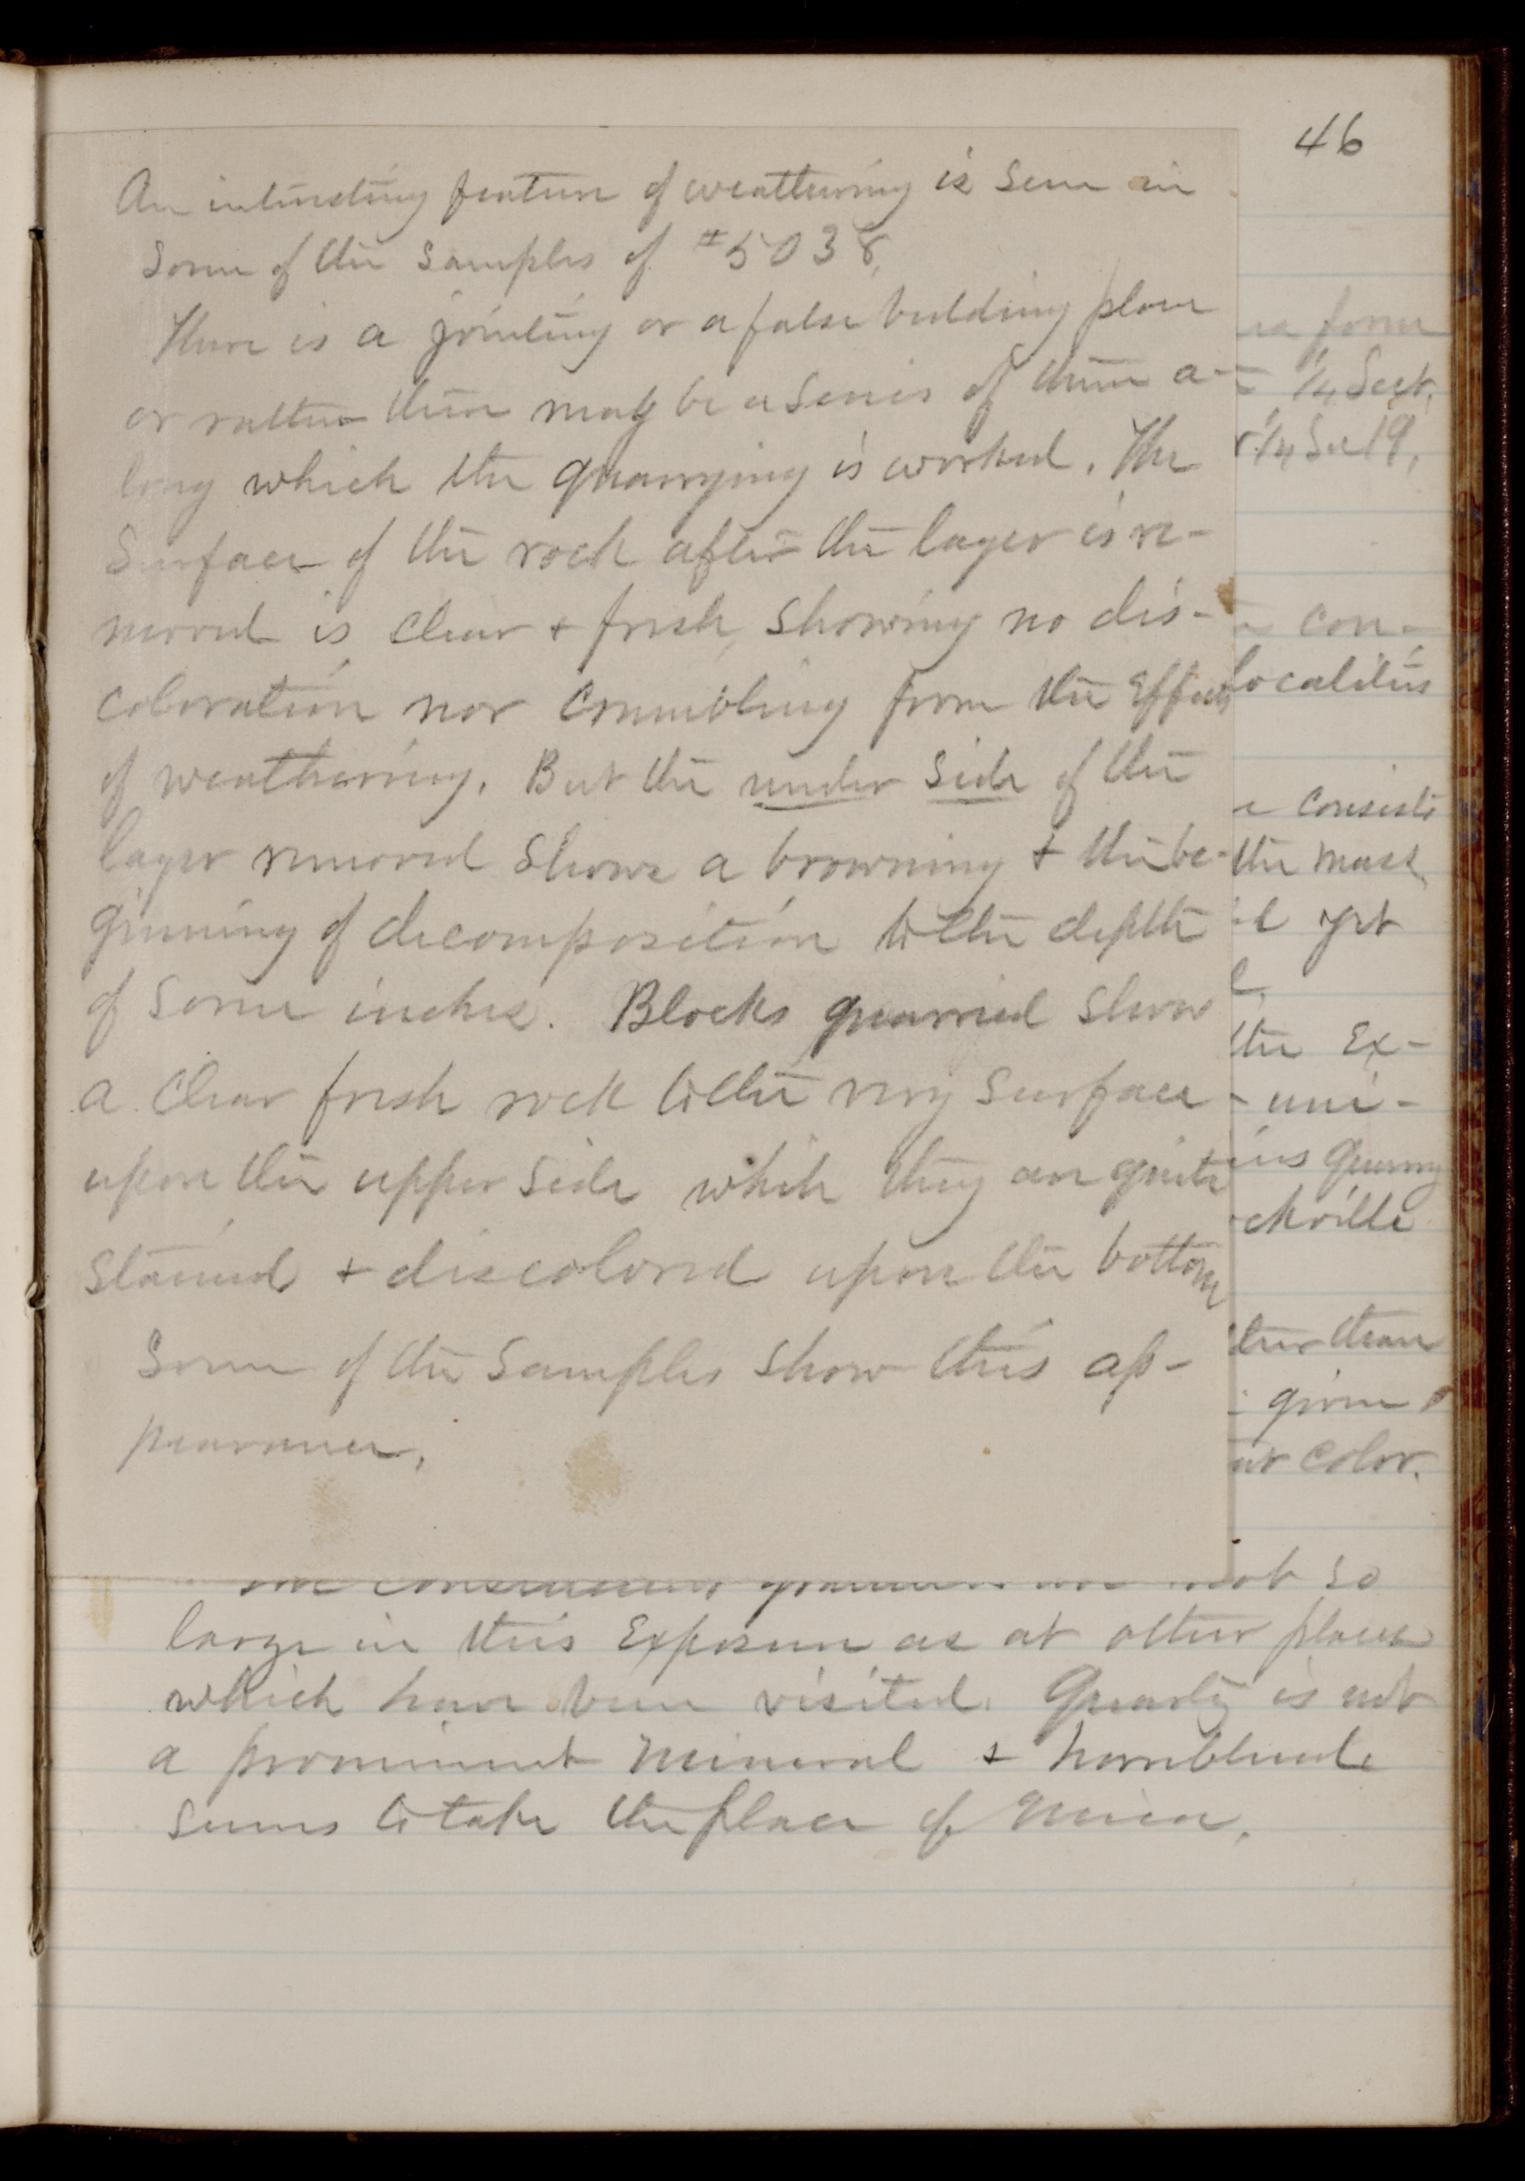 46
An interesting feature of weathering is seen in
some of the samples of #5038,
There is a jointing or a false bedding plane
or rather there may be a series of them a-
long which the quarrying is worked. The
surface of the rock after the layer is re-
moved is clear & fresh, showing no dis-
coloration nor crumbling from the effects
of weathering. But the under side of the
layer removed shows a browning & the be-
ginning of decomposition to the depth
of some inches. Blocks quarried show
a clear fresh rock to the very surface
upon the upper side while they are quite
stained & discolored upon the bottom
Some of the samples show this ap-
pearance.
form
1/4 Sect.
1/4 Sec 19,
con-
localities
consists
the mass
yet
the Ex-
uni-
quarry
ckville
than
given
color.
not so
large in this Exposure as at other places
which have been visited. Quartz is not
a prominent mineral & hornblende
seems to take the place of mica.